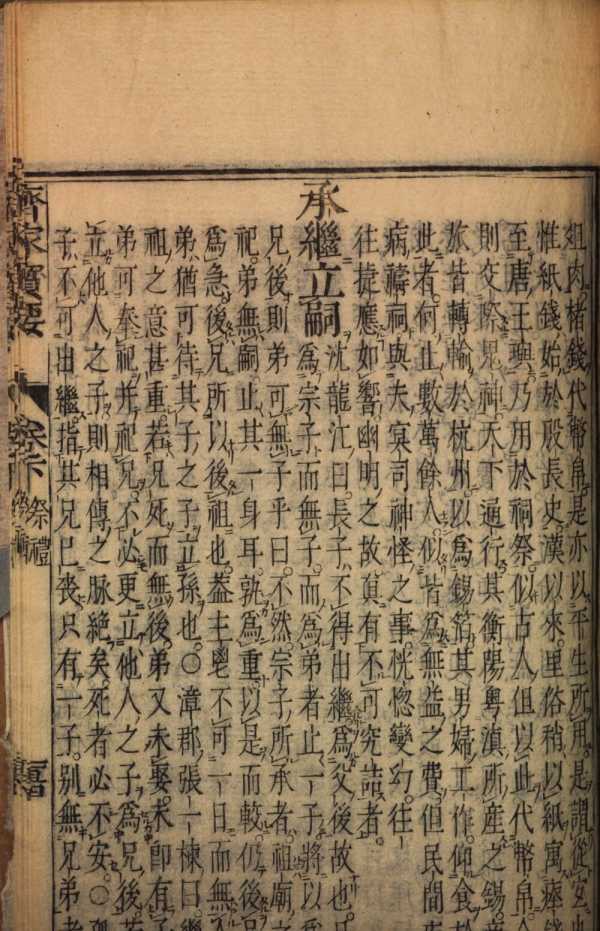 俎肉楮錢代幣帛是亦以平生所用是謂從
惟紙錢始於殷長史漢以來里俗稍以紙寓瘞錢
至唐王璵乃用於祠祭似古人但以此代幣帛
則交際鬼神天下通行其衡陽粤滇所産之錫
旅皆轉輸於杭州以爲錫箔其男婦工作仰食於
此者何止數萬餘人似皆爲無益之費但民間
病禱祠與夫冥司神怪之事恍惚變幻往
往捷應如響幽明之故眞有不可究詰者
承繼立嗣 沈龍江曰長子不得出繼爲父後故也
爲宗子而無子而爲弟者止一子將以爲
兄後則弟可無子乎曰不然宗子所承者祖廟之
祀弟無嗣止其一身耳孰爲重以是而較仍後兄
爲急後兄所以後祖也蓋主鬯不可一日而無
弟猶可待其子之子立孫也○漳郡張一棟曰繼
祖之意甚重若兄死而無後弟又未娶未卽有子
弟可奉祀并祀兄不必更立他人之子爲兄後若
立他人之子則相傳之脉絶矣死者必不安○
子不可出繼指其兄已喪只有一子别無兄弟者
齊家寶要 卷下 祭禮